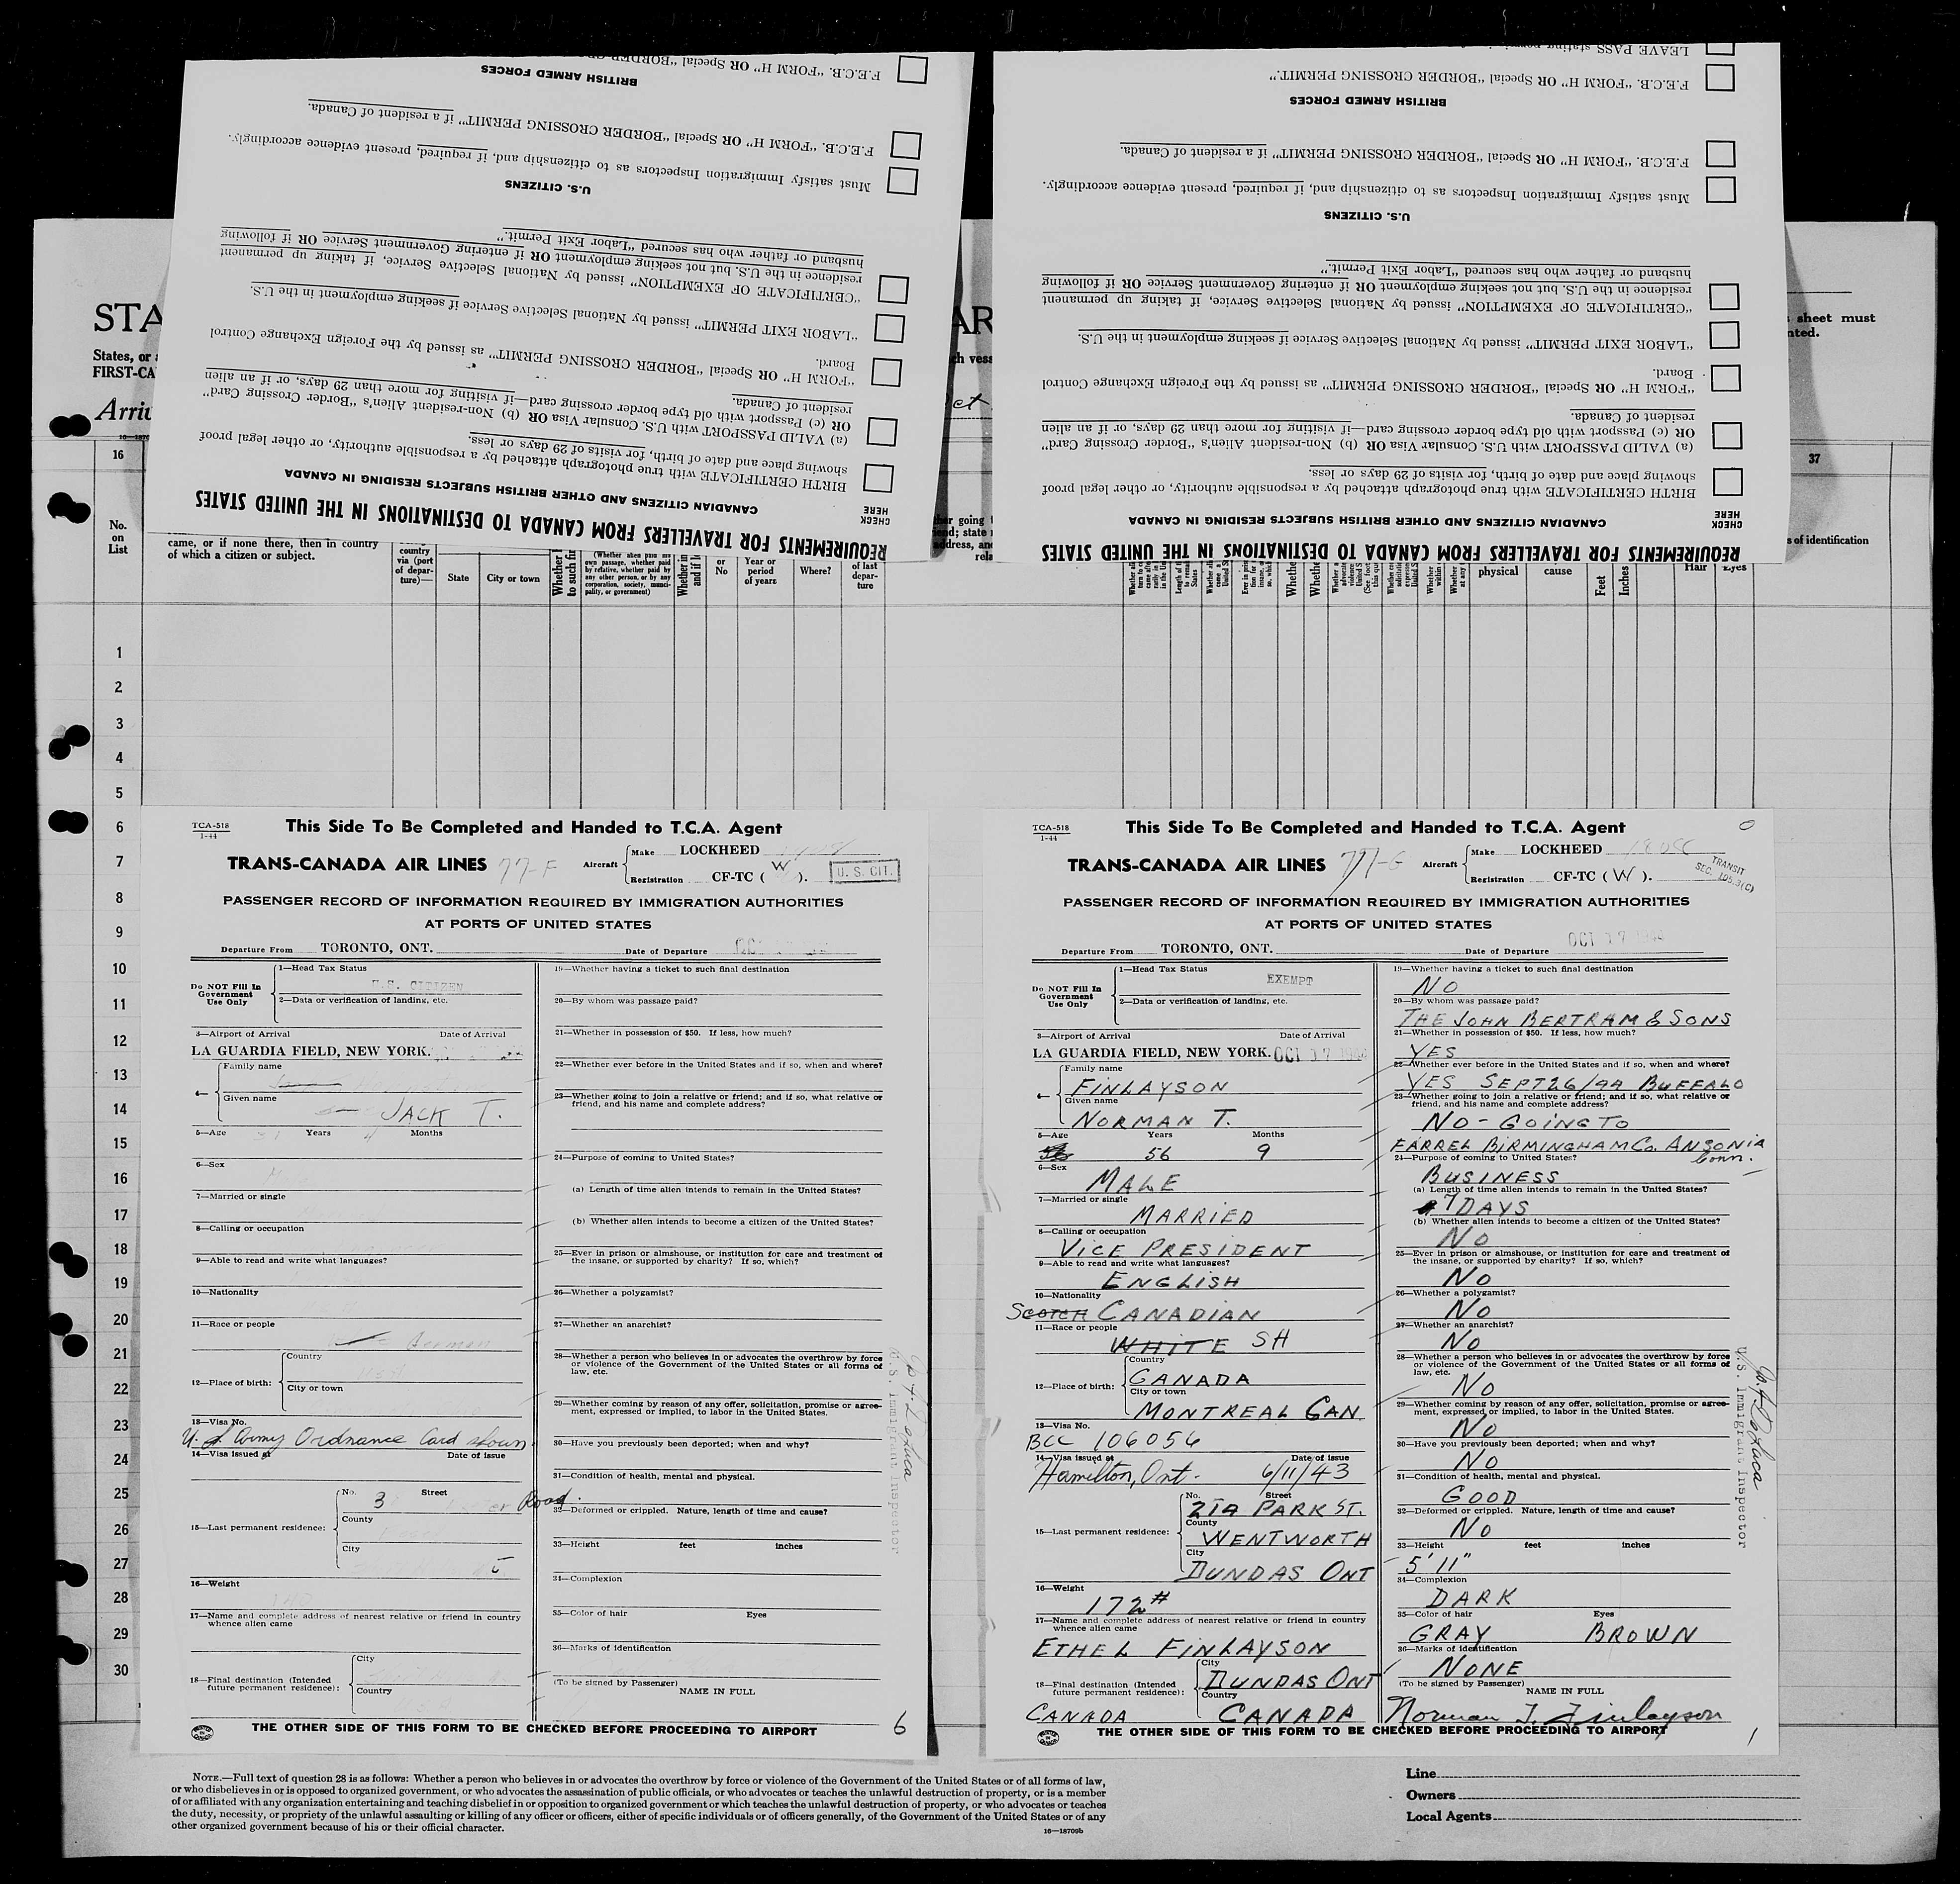 LEAVE PASS stating
F.E.C.B. "FORM H" OR Special "BORDER
BRITISH ARMED FORCES
F.E.C.B. "FORM H" OR Special "BORDER CROSSING PERMIT" if a resident of Canada.
Must satisfy Immigration Inspectors as to citizenship and, if required, present evidence accordingly.
U.S. CITIZENS
husband or father who has secured "Labor Exit Permit."
residence in the U.S. but not seeking employment OR if entering Government Service OR if following
"CERTIFICATE OF EXEMPTION" issued by National Selective Service, if taking up permanent
"LABOR EXIT PERMIT" issued by National Selective Service if seeking employment in the U.S.
Board.
"FORM H" OR Special "BORDER CROSSING PERMIT" as issued by the Foreign Exchange Control
resident of Canada.
OR (c) Passport with old type border crossing card—if visiting for more than 29 days, or if an alien
(a) VALID PASSPORT with U.S. Consular Visa OR (b) Non-resident Alien's "Border Crossing Card"
showing place and date of birth, for visits of 29 days or less.
BIRTH CERTIFICATE with true photograph attached by a responsible authority, or other legal proof
CANADIAN CITIZENS AND OTHER BRITISH SUBJECTS RESIDING IN CANADA
CHECK HERE
REQUIREMENTS FOR TRAVELLERS FROM CANADA TO DESTINATIONS IN THE UNITED STATES
F.E.C.B. "FORM H" OR Special "BORDER CROSSING PERMIT."
BRITISH ARMED FORCES
F.E.C.B. "FORM H" OR Special "BORDER CROSSING PERMIT" if a resident of Canada.
Must satisfy Immigration Inspectors as to citizenship and, if required, present evidence accordingly.
U.S. CITIZENS
husband or father who has secured "Labor Exit Permit."
residence in the U.S. but not seeking employment OR if entering Government Service OR if following
"CERTIFICATE OF EXEMPTION" issued by National Selective Service, if taking up permanent
"LABOR EXIT PERMIT" issued by National Selective Service if seeking employment in the U.S.
Board.
"FORM H" OR Special "BORDER CROSSING PERMIT" as issued by the Foreign Exchange Control
resident of Canada.
OR (c) Passport with old type border crossing card—if visiting for more than 29 days, or if an alien
(a) VALID PASSPORT with U.S. Consular Visa OR (b) Non-resident Alien's "Border Crossing Card"
showing place and date of birth, for visits of 29 days or less.
BIRTH CERTIFICATE with true photograph attached by a responsible authority, or other legal proof
CANADIAN CITIZENS AND OTHER BRITISH SUBJECTS RESIDING IN CANADA
CHECK HERE
REQUIREMENTS FOR TRAVELLERS FROM CANADA TO DESTINATIONS IN THE UNITED STATES
STA
States, or
FIRST-CA
Arri
sheet must
16
37
No. on List
came, or if none there, then in country
of which a citizen or subject.
country via (port of departure)—
State
City or town
(Whether alien paid his own passage, whether paid by relative, whether paid by any other person, or by any corporation, society, municipality, or government)
or No
Year or period of years
Where?
of last departure
s of identification
physical
cause
Feet
Inches
Hair
Eyes
1
2
3
4
5
6
7
8
9
10
11
12
13
14
15
16
17
18
19
20
21
22
23
24
25
26
27
28
29
30
TCA-518
1-44
This Side To Be Completed and Handed to T.C.A. Agent
TRANS-CANADA AIR LINES 77-F
Aircraft
Make LOCKHEED
Registration CF-TC ( W ).
U. S. CIT.
PASSENGER RECORD OF INFORMATION REQUIRED BY IMMIGRATION AUTHORITIES
AT PORTS OF UNITED STATES
Departure From TORONTO, ONT. Date of Departure
Do NOT Fill In Government Use Only
1—Head Tax Status
U.S. CITIZEN
2—Data or verification of landing, etc.
3—Airport of Arrival Date of Arrival
LA GUARDIA FIELD, NEW YORK.
4—
Family name
Given name
JACK T.
5—Age Years Months
6—Sex
7—Married or single
8—Calling or occupation
9—Able to read and write what languages?
10—Nationality
11—Race or people
German
12—Place of birth:
Country
City or town
13—Visa No.
U. S. Army Ordnance Card shown
14—Visa issued at Date of issue
15—Last permanent residence:
No. 3 Street Road.
County
City
16—Weight
17—Name and complete address of nearest relative or friend in country
whence alien came
18—Final destination (Intended
future permanent residence):
City
Country
19—Whether having a ticket to such final destination
20—By whom was passage paid?
21—Whether in possession of $50. If less, how much?
22—Whether ever before in the United States and if so, when and where?
23—Whether going to join a relative or friend; and if so, what relative or
friend, and his name and complete address?
24—Purpose of coming to United States?
(a) Length of time alien intends to remain in the United States?
(b) Whether alien intends to become a citizen of the United States?
25—Ever in prison or almshouse, or institution for care and treatment of
the insane, or supported by charity? If so, which?
26—Whether a polygamist?
27—Whether an anarchist?
28—Whether a person who believes in or advocates the overthrow by force
or violence of the Government of the United States or all forms of
law, etc.
29—Whether coming by reason of any offer, solicitation, promise or agree-
ment, expressed or implied, to labor in the United States.
30—Have you previously been deported; when and why?
31—Condition of health, mental and physical.
32—Deformed or crippled. Nature, length of time and cause?
33—Height feet inches
34—Complexion
35—Color of hair Eyes
36—Marks of identification
(To be signed by Passenger)
NAME IN FULL
U.S. Immigrant Inspector
THE OTHER SIDE OF THIS FORM TO BE CHECKED BEFORE PROCEEDING TO AIRPORT
6
TCA-518
1-44
This Side To Be Completed and Handed to T.C.A. Agent
TRANS-CANADA AIR LINES 77-G
Aircraft
Make LOCKHEED
Registration CF-TC ( W ).
TRANSIT
SEC. 105.3(C)
PASSENGER RECORD OF INFORMATION REQUIRED BY IMMIGRATION AUTHORITIES
AT PORTS OF UNITED STATES
Departure From TORONTO, ONT. Date of Departure OCT 17
Do NOT Fill In Government Use Only
1—Head Tax Status
EXEMPT
2—Data or verification of landing, etc.
3—Airport of Arrival Date of Arrival
LA GUARDIA FIELD, NEW YORK. OCT 17
4—
Family name
FINLAYSON
Given name
NORMAN T.
5—Age Years Months
56 9
6—Sex
MALE
7—Married or single
MARRIED
8—Calling or occupation
VICE PRESIDENT
9—Able to read and write what languages?
ENGLISH
10—Nationality
SCOTCH CANADIAN
11—Race or people
WHITE SH
12—Place of birth:
Country
CANADA
City or town
MONTREAL CAN
13—Visa No.
BCC 106056
14—Visa issued at Date of issue
Hamilton, Ont. 6/11/43
15—Last permanent residence:
No. Street
219 PARK ST.
County
WENTWORTH
City
DUNDAS ONT
16—Weight
172#
17—Name and complete address of nearest relative or friend in country
whence alien came
ETHEL FINLAYSON
18—Final destination (Intended
future permanent residence):
City
DUNDAS ONT
Country
CANADA CANADA
19—Whether having a ticket to such final destination
NO
20—By whom was passage paid?
THE JOHN BERTRAM & SONS
21—Whether in possession of $50. If less, how much?
YES
22—Whether ever before in the United States and if so, when and where?
YES SEPT 26/44 BUFFALO
23—Whether going to join a relative or friend; and if so, what relative or
friend, and his name and complete address?
NO - GOING TO
FARREL BIRMINGHAM Co. ANSONIA
Conn.
24—Purpose of coming to United States?
BUSINESS
(a) Length of time alien intends to remain in the United States?
7 DAYS
(b) Whether alien intends to become a citizen of the United States?
NO
25—Ever in prison or almshouse, or institution for care and treatment of
the insane, or supported by charity? If so, which?
NO
26—Whether a polygamist?
NO
27—Whether an anarchist?
NO
28—Whether a person who believes in or advocates the overthrow by force
or violence of the Government of the United States or all forms of
law, etc.
NO
29—Whether coming by reason of any offer, solicitation, promise or agree-
ment, expressed or implied, to labor in the United States.
NO
30—Have you previously been deported; when and why?
NO
31—Condition of health, mental and physical.
GOOD
32—Deformed or crippled. Nature, length of time and cause?
NO
33—Height feet inches
5' 11"
34—Complexion
DARK
35—Color of hair Eyes
GRAY BROWN
36—Marks of identification
NONE
(To be signed by Passenger)
NAME IN FULL
Norman T. Finlayson
U.S. Immigrant Inspector
THE OTHER SIDE OF THIS FORM TO BE CHECKED BEFORE PROCEEDING TO AIRPORT
1
NOTE.—Full text of question 28 is as follows: Whether a person who believes in or advocates the overthrow by force or violence of the Government of the United States or of all forms of law,
or who disbelieves in or is opposed to organized government, or who advocates the assassination of public officials, or who advocates or teaches the unlawful destruction of property, or is a member
of or affiliated with any organization entertaining and teaching disbelief in or opposition to organized government or which teaches the unlawful destruction of property, or who advocates or teaches
the duty, necessity, or propriety of the unlawful assaulting or killing of any officer or officers, either of specific individuals or of officers generally, of the Government of the United States or of any
other organized government because of his or their official character.
16—18709b
Line
Owners
Local Agents